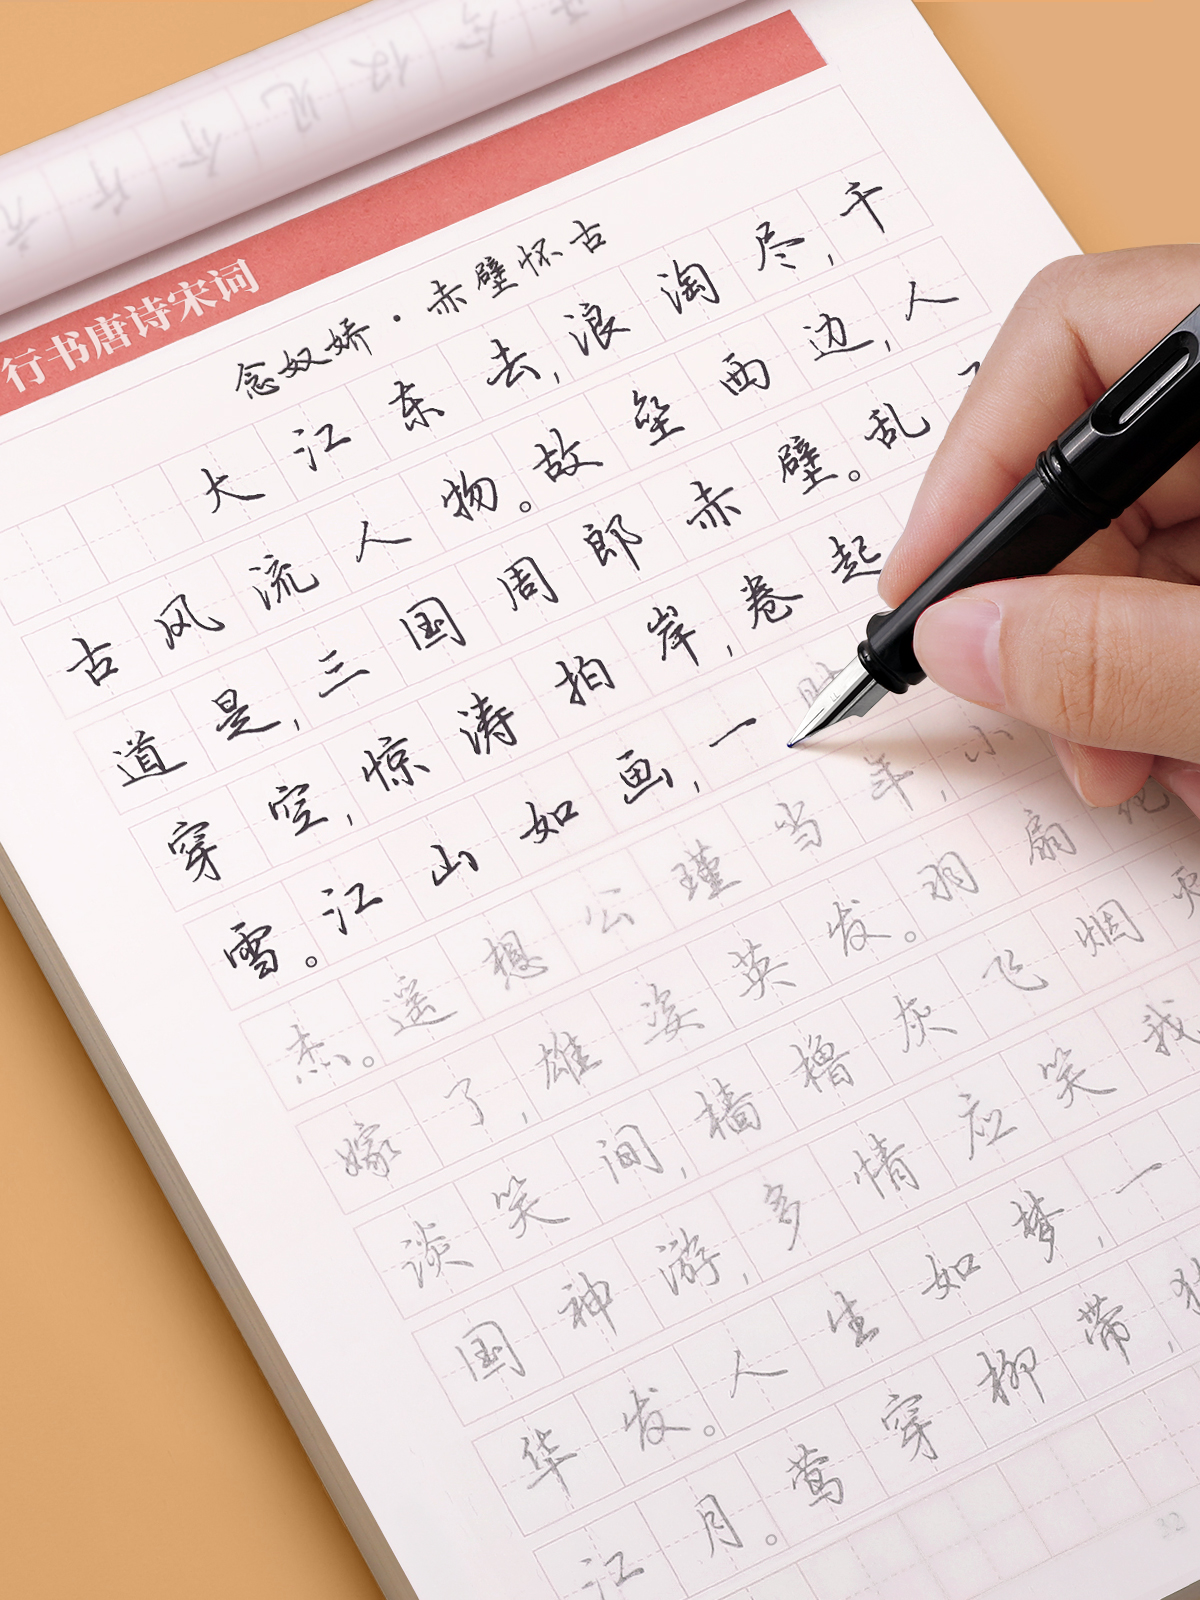 行书唐诗宋词
念奴娇·赤壁怀古
大江东去,浪淘尽,千
古风流人物。故垒西边,人
道是,三国周郎赤壁。乱
穿空,惊涛拍岸,卷起
雪。江山如画,一
杰。遥想公瑾当年,小
嫁了,雄姿英发。羽扇纶
谈笑间,樯橹灰飞烟灭
国神游,多情应笑我
华发。人生如梦,一
江月。莺穿柳带,犹
32